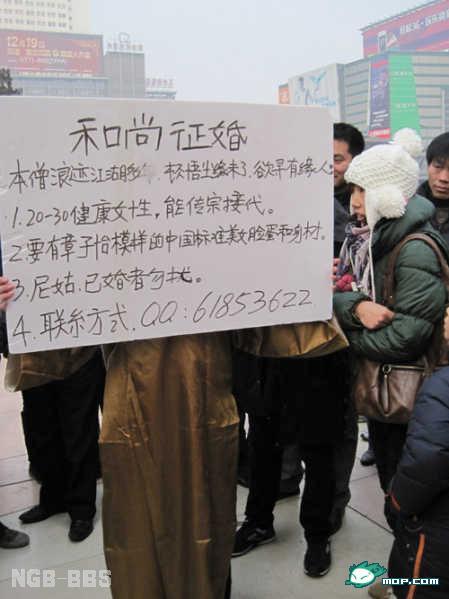 12月19日
和尚征婚
本僧浪迹江湖数年,校悟出缘未了,欲寻有缘人
1.20-30健康女性,能传宗接代。
2.要有章子怡模样的中国标准美女脸蛋和身材。
3.尼姑,已婚者勿扰。
4.联系方式.QQ:61853622
NGB-BBS
mop.com